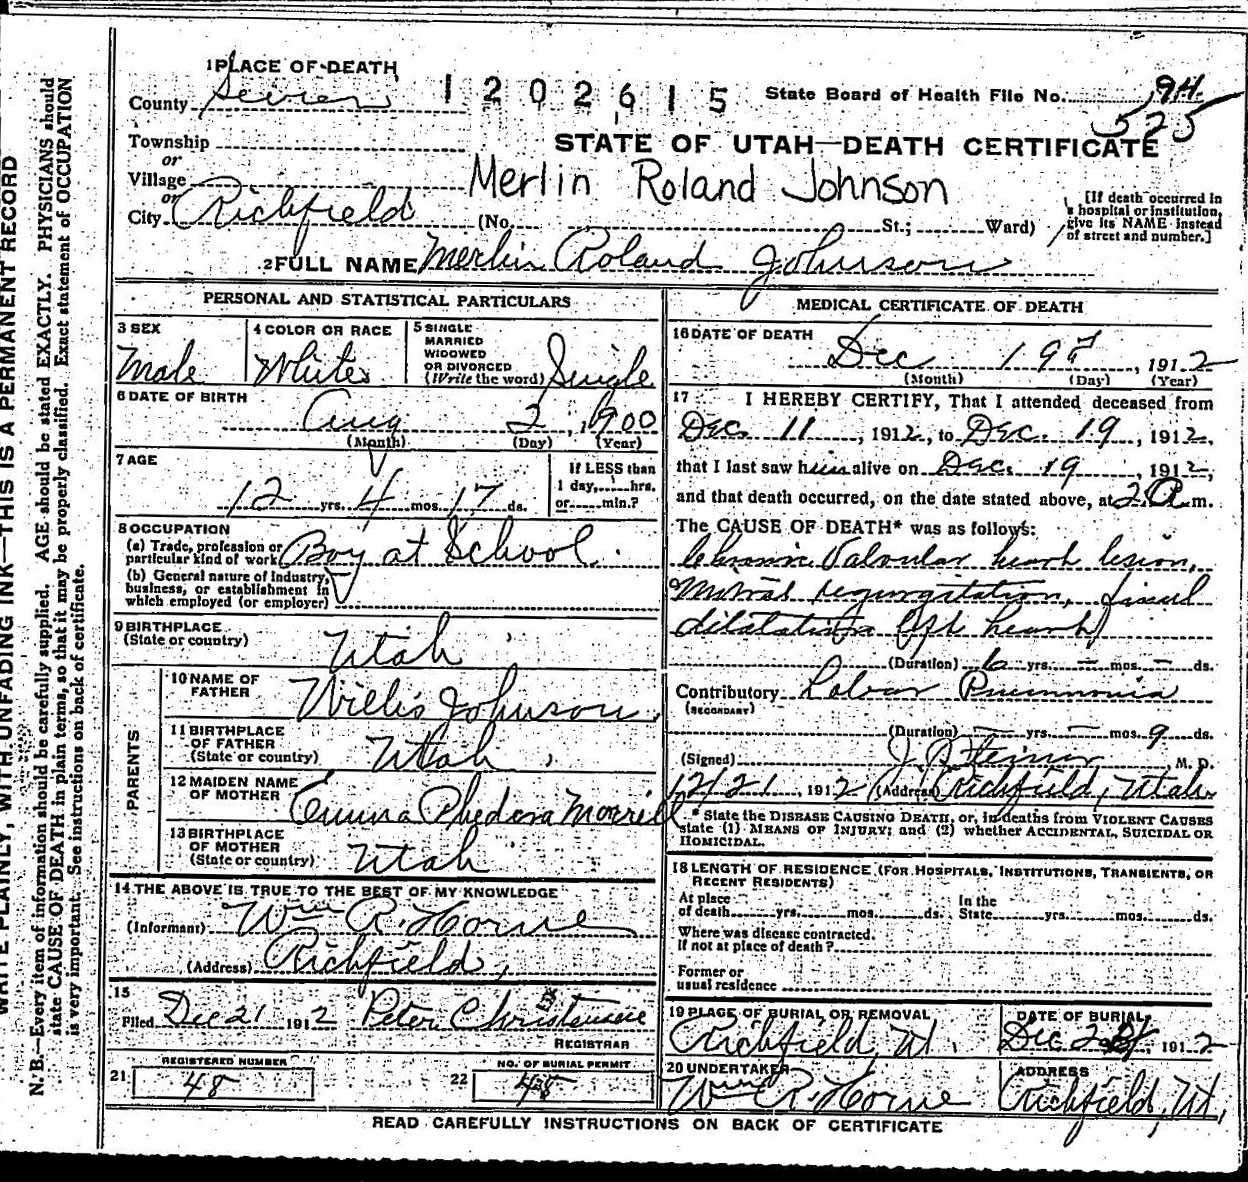 1 PLACE OF DEATH
County Sevier
1202615
State Board of Health File No. 94
525
STATE OF UTAH—DEATH CERTIFICATE
Township
or
Village
Merlin Roland Johnson
or
City Richfield (No. St.; Ward)
[If death occurred in
a hospital or institution,
give its NAME instead
of street and number.]
2 FULL NAME Merlin Roland Johnson
PERSONAL AND STATISTICAL PARTICULARS
3 SEX
Male
4 COLOR OR RACE
White
5 SINGLE
MARRIED
WIDOWED
OR DIVORCED
(Write the word) Single
6 DATE OF BIRTH
Aug 2, 1900
(Month) (Day) (Year)
7 AGE
12 yrs. 4 mos. 17 ds.
If LESS than
1 day, hrs.
or min.?
8 OCCUPATION
(a) Trade, profession or
particular kind of work Boy at School.
(b) General nature of Industry,
business, or establishment in
which employed (or employer)
9 BIRTHPLACE
(State or country)
Utah
PARENTS
10 NAME OF
FATHER
Willis Johnson
11 BIRTHPLACE
OF FATHER
(State or country)
Utah
12 MAIDEN NAME
OF MOTHER
Emma Phedora Morrill
13 BIRTHPLACE
OF MOTHER
(State or country)
Utah
14 THE ABOVE IS TRUE TO THE BEST OF MY KNOWLEDGE
(Informant) Wm R. Horne
(Address) Richfield,
15
Filed Dec 21 1912 Peter Christensen
REGISTRAR
REGISTERED NUMBER
21 48
NO. OF BURIAL PERMIT
22 48
MEDICAL CERTIFICATE OF DEATH
16 DATE OF DEATH
Dec 19th, 1912
(Month) (Day) (Year)
17 I HEREBY CERTIFY, That I attended deceased from
Dec. 11, 1912, to Dec. 19, 1912,
that I last saw him alive on Dec. 19, 1912,
and that death occurred, on the date stated above, at 2 A m.
The CAUSE OF DEATH* was as follows:
Chronic Valvular heart lesion,
Mitral regurgitation,
dilatation of heart
(Duration) 6 yrs. – mos. – ds.
Contributory Lobar Pneumonia
(SECONDARY)
(Duration) – yrs. – mos. 9 ds.
(Signed) J. Steiner, M. D.
12/21, 1912 (Address) Richfield, Utah.
* State the DISEASE CAUSING DEATH, or, in deaths from VIOLENT CAUSES
state (1) MEANS OF INJURY; and (2) whether ACCIDENTAL, SUICIDAL OR
HOMICIDAL.
18 LENGTH OF RESIDENCE (FOR HOSPITALS, INSTITUTIONS, TRANSIENTS, OR
RECENT RESIDENTS)
At place
of death yrs. mos. ds.
In the
State yrs. mos. ds.
Where was disease contracted,
if not at place of death?
Former or
usual residence
19 PLACE OF BURIAL OR REMOVAL
Richfield, Ut.
DATE OF BURIAL
Dec 1912
20 UNDERTAKER
Wm R. Horne
ADDRESS
Richfield, Ut,
READ CAREFULLY INSTRUCTIONS ON BACK OF CERTIFICATE
WRITE PLAINLY, WITH UNFADING INK—THIS IS A PERMANENT RECORD
N. B.—Every item of information should be carefully supplied. AGE should be stated EXACTLY. PHYSICIANS should
state CAUSE OF DEATH in plain terms, so that it may be properly classified. Exact statement of OCCUPATION
is very important. See instructions on back of certificate.